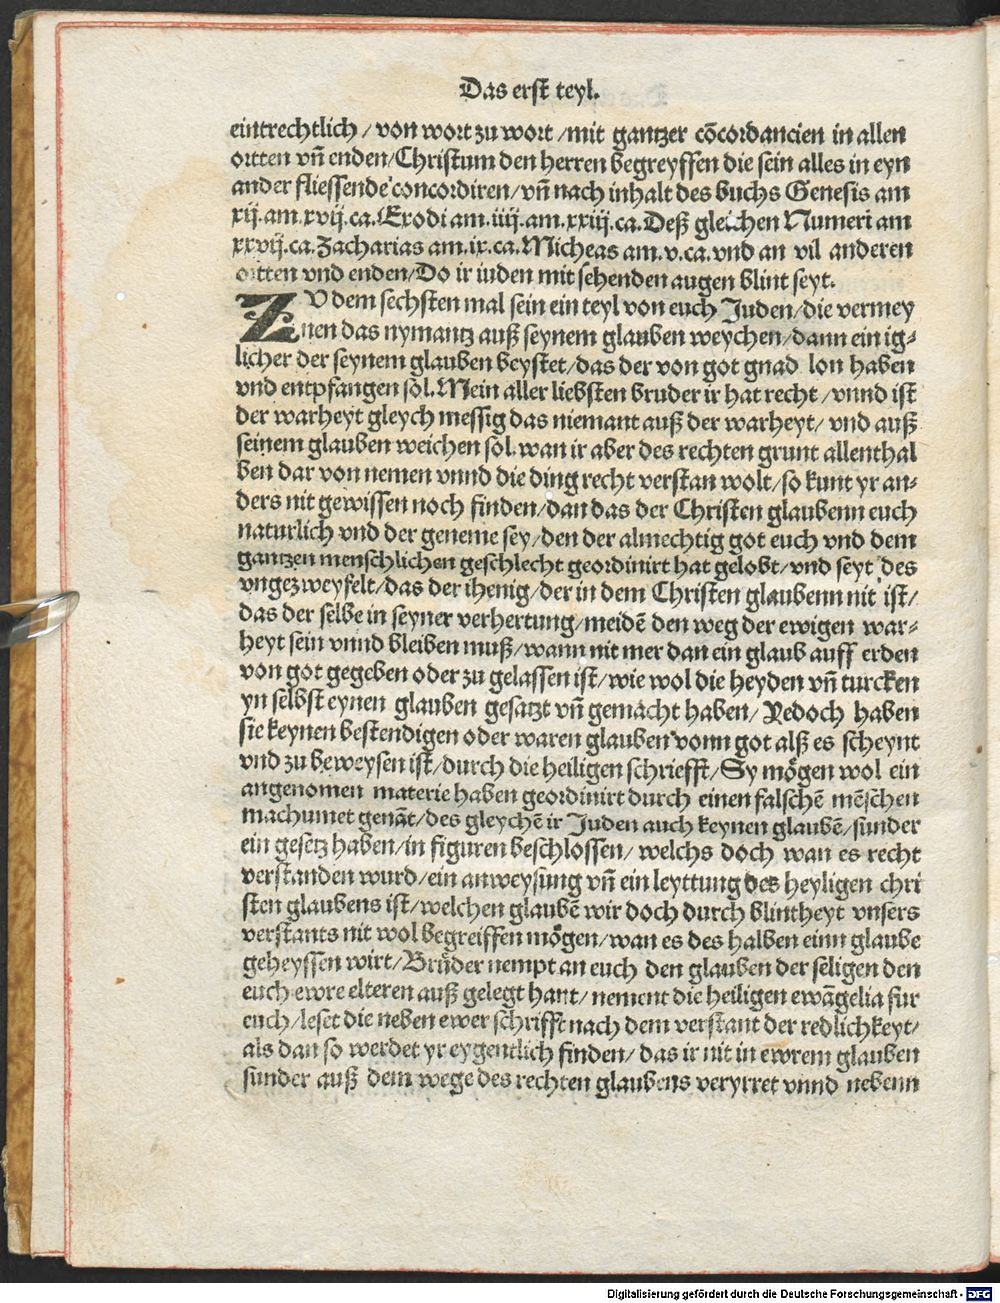 Das erst teyl.
eintrechtlich / von wort zu wort /mit gantzer cōcordancien in allen
ortten vn̄ enden/Christum den herren begreyffen die sein alles in eyn
ander fliessende concordiren/vn̄ nach inhalt des buchs Genesis am
xij.am.xvij.ca.Exodi am.iiij.am.xxiij.ca.Deß gleichen Numeri am
xxvij.ca.Zacharias am.ix.ca.Micheas am.v.ca.vnd an vil anderen
ortten vnd enden/Do ir iuden mit sehenden augen blint seyt.
ZV dem sechsten mal sein ein teyl von euch Juden/die vermey
nen das nymantz auß seynem glauben weychen/dann ein ig⸗
licher der seynem glauben beystet/das der von got gnad lon haben
vnd entpfangen sol.Mein aller liebsten bruder ir hat recht /vnnd ist
der warheyt gleych messig das niemant auß der warheyt/ vnd auß
seinem glauben weichen sol.wan ir aber des rechten grunt allenthal
ben dar von nemen vnnd die ding recht verstan wolt/so kunt yr an⸗
ders nit gewissen noch finden/dan das der Christen glaubenn euch
naturlich vnd der geneme sey/den der almechtig got euch vnd dem
gantzen menschlichen geschlecht geordinirt hat gelobt/vnd seyt des
vngezweyfelt/das der ihenig/der in dem Christen glaubenn nit ist/
das der selbe in seyner verhertung/meidē den weg der ewigen war⸗
heyt sein vnnd bleiben muß/wann nit mer dan ein glaub auff erden
von got gegeben oder zu gelassen ist/wie wol die heyden vn̄ turcken
yn selbst eynen glauben gesatzt vn̄ gemacht haben/ Yedoch haben
sie keynen bestendigen oder waren glauben vonn got alß es scheynt
vnd zu beweysen ist/durch die heiligen schriefft/Sy mögen wol ein
angenomen materie haben geordinirt durch einen falschē mēschen
machumet genāt/des gleychē ir Juden auch keynen glaubē/sunder
ein gesetz haben/in figuren beschlossen/ welchs doch wan es recht
verstanden wurd/ein anweysung vn̄ ein leyttung des heyligen chri
sten glaubens ist/welchen glaubē wir doch durch blintheyt vnsers
verstants nit wol begreiffen mögen/wan es des halben einn glaube
geheyssen wirt/Brůder nempt an euch den glauben der seligen den
euch ewre elteren auß gelegt hant/nement die heiligen ewāgelia fur
euch/leset die neben ewer schrifft nach dem verstant der redlichkeyt/
als dan so werdet yr eygentlich finden/das ir nit in ewrem glauben
sunder auß dem wege des rechten glaubens veryrret vnnd nebenn
Digitalisierung gefördert durch die Deutsche Forschungsgemeinschaft - DFG